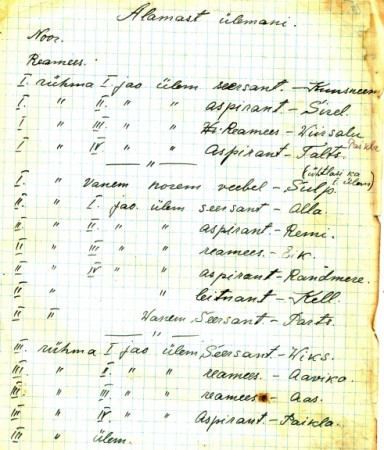 Alamast ülemani.
Noor.
Reamees.
I. rühma I jao ülem seersant. – Kunsneem
I. " II. " " aspirant – Sirel.
I " III. " " Reamees – Viirsalu
I " IV " " Aspirant – Talts. Paikla
"
(ühtlasi ka I. ülem)
I. " vanem norem veebel – Sulp.
II. " I. jao ülem seersant – Alla.
II " II " " aspirant – Remi.
II " III " " reamees. – Eik.
II " IV " " aspirant – Randmere.
II " " leitnant – Kell.
II " Vanem Seersant – Parts.
"
III rühma I jao ülem Seersant – Wiks.
III. " II. " " reamees. – Aaviko.
III " III. " " reamees – Aas.
III " IV. " " Aspirant – Paikla.
III " ülem.